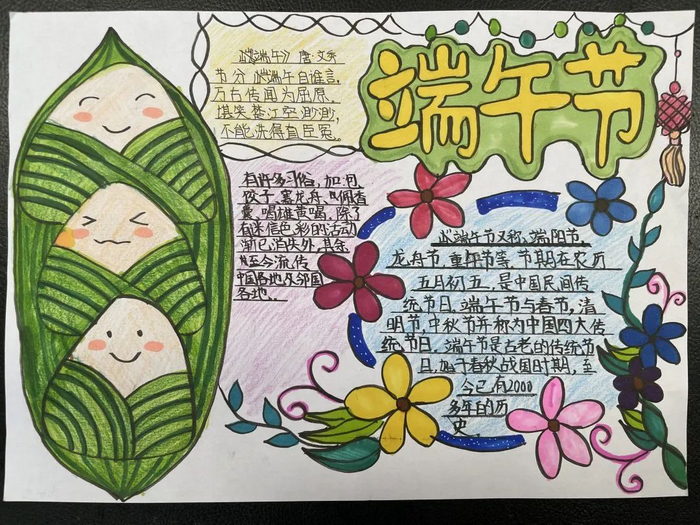 端午节
《端午》 唐 文秀
节分端午自谁言,
万古传闻为屈原,
堪笑楚江空渺渺,
不能洗得直臣冤。
有许多习俗,如包
饺子,赛龙舟,佩香
囊,喝雄黄喝,除了
有迷信色彩的活动
渐已消失外,其余
至今流传
中国各地及邻国
各地。
端午节又称,端阳节,
龙舟节,重午节等,节期在农历
五月初五,是中国民间传
统节日。端午节与春节,清
明节,中秋节并称为中国四大传
统节日。端午节是古老的传统节
日,始于春秋战国时期,至
今已有2000
多年的历
史。